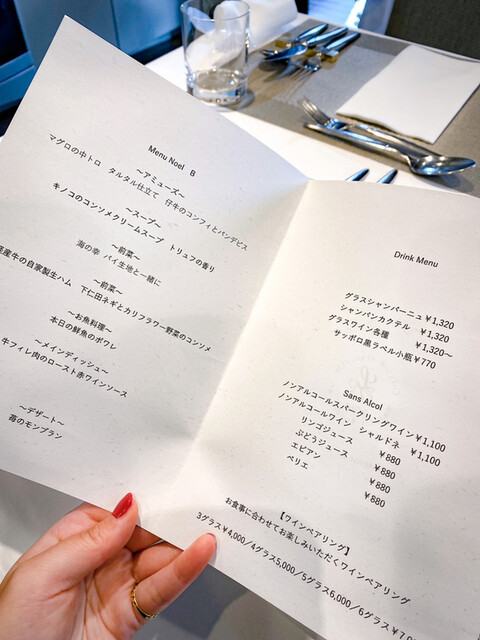 Menu Noel B
～アミューズ～
マグロの中トロ タルタル仕立て 仔牛のコンフィとパンデピス
～スープ～
キノコのコンソメクリームスープ トリュフの香り
～前菜～
海の幸 パイ生地と一緒に
～前菜～
産牛の自家製生ハム 下仁田ネギとカリフラワー野菜のコンソメ
～お魚料理～
本日の鮮魚のポワレ
～メインディッシュ～
牛フィレ肉のロースト赤ワインソース
～デザート～
苺のモンブラン
Drink Menu
グラスシャンパーニュ ¥1,320
シャンパンカクテル ¥1,320
グラスワイン各種 ¥1,320～
サッポロ黒ラベル小瓶 ¥770
Sans Alcol
ノンアルコールスパークリングワイン ¥1,100
ノンアルコールワイン シャルドネ ¥1,100
リンゴジュース ¥880
ぶどうジュース ¥880
エビアン ¥880
ペリエ ¥880
【ワインペアリング】
お食事に合わせてお楽しみいただくワインペアリング
3グラス¥4,000/4グラス5,000/5グラス6,000/6グラス